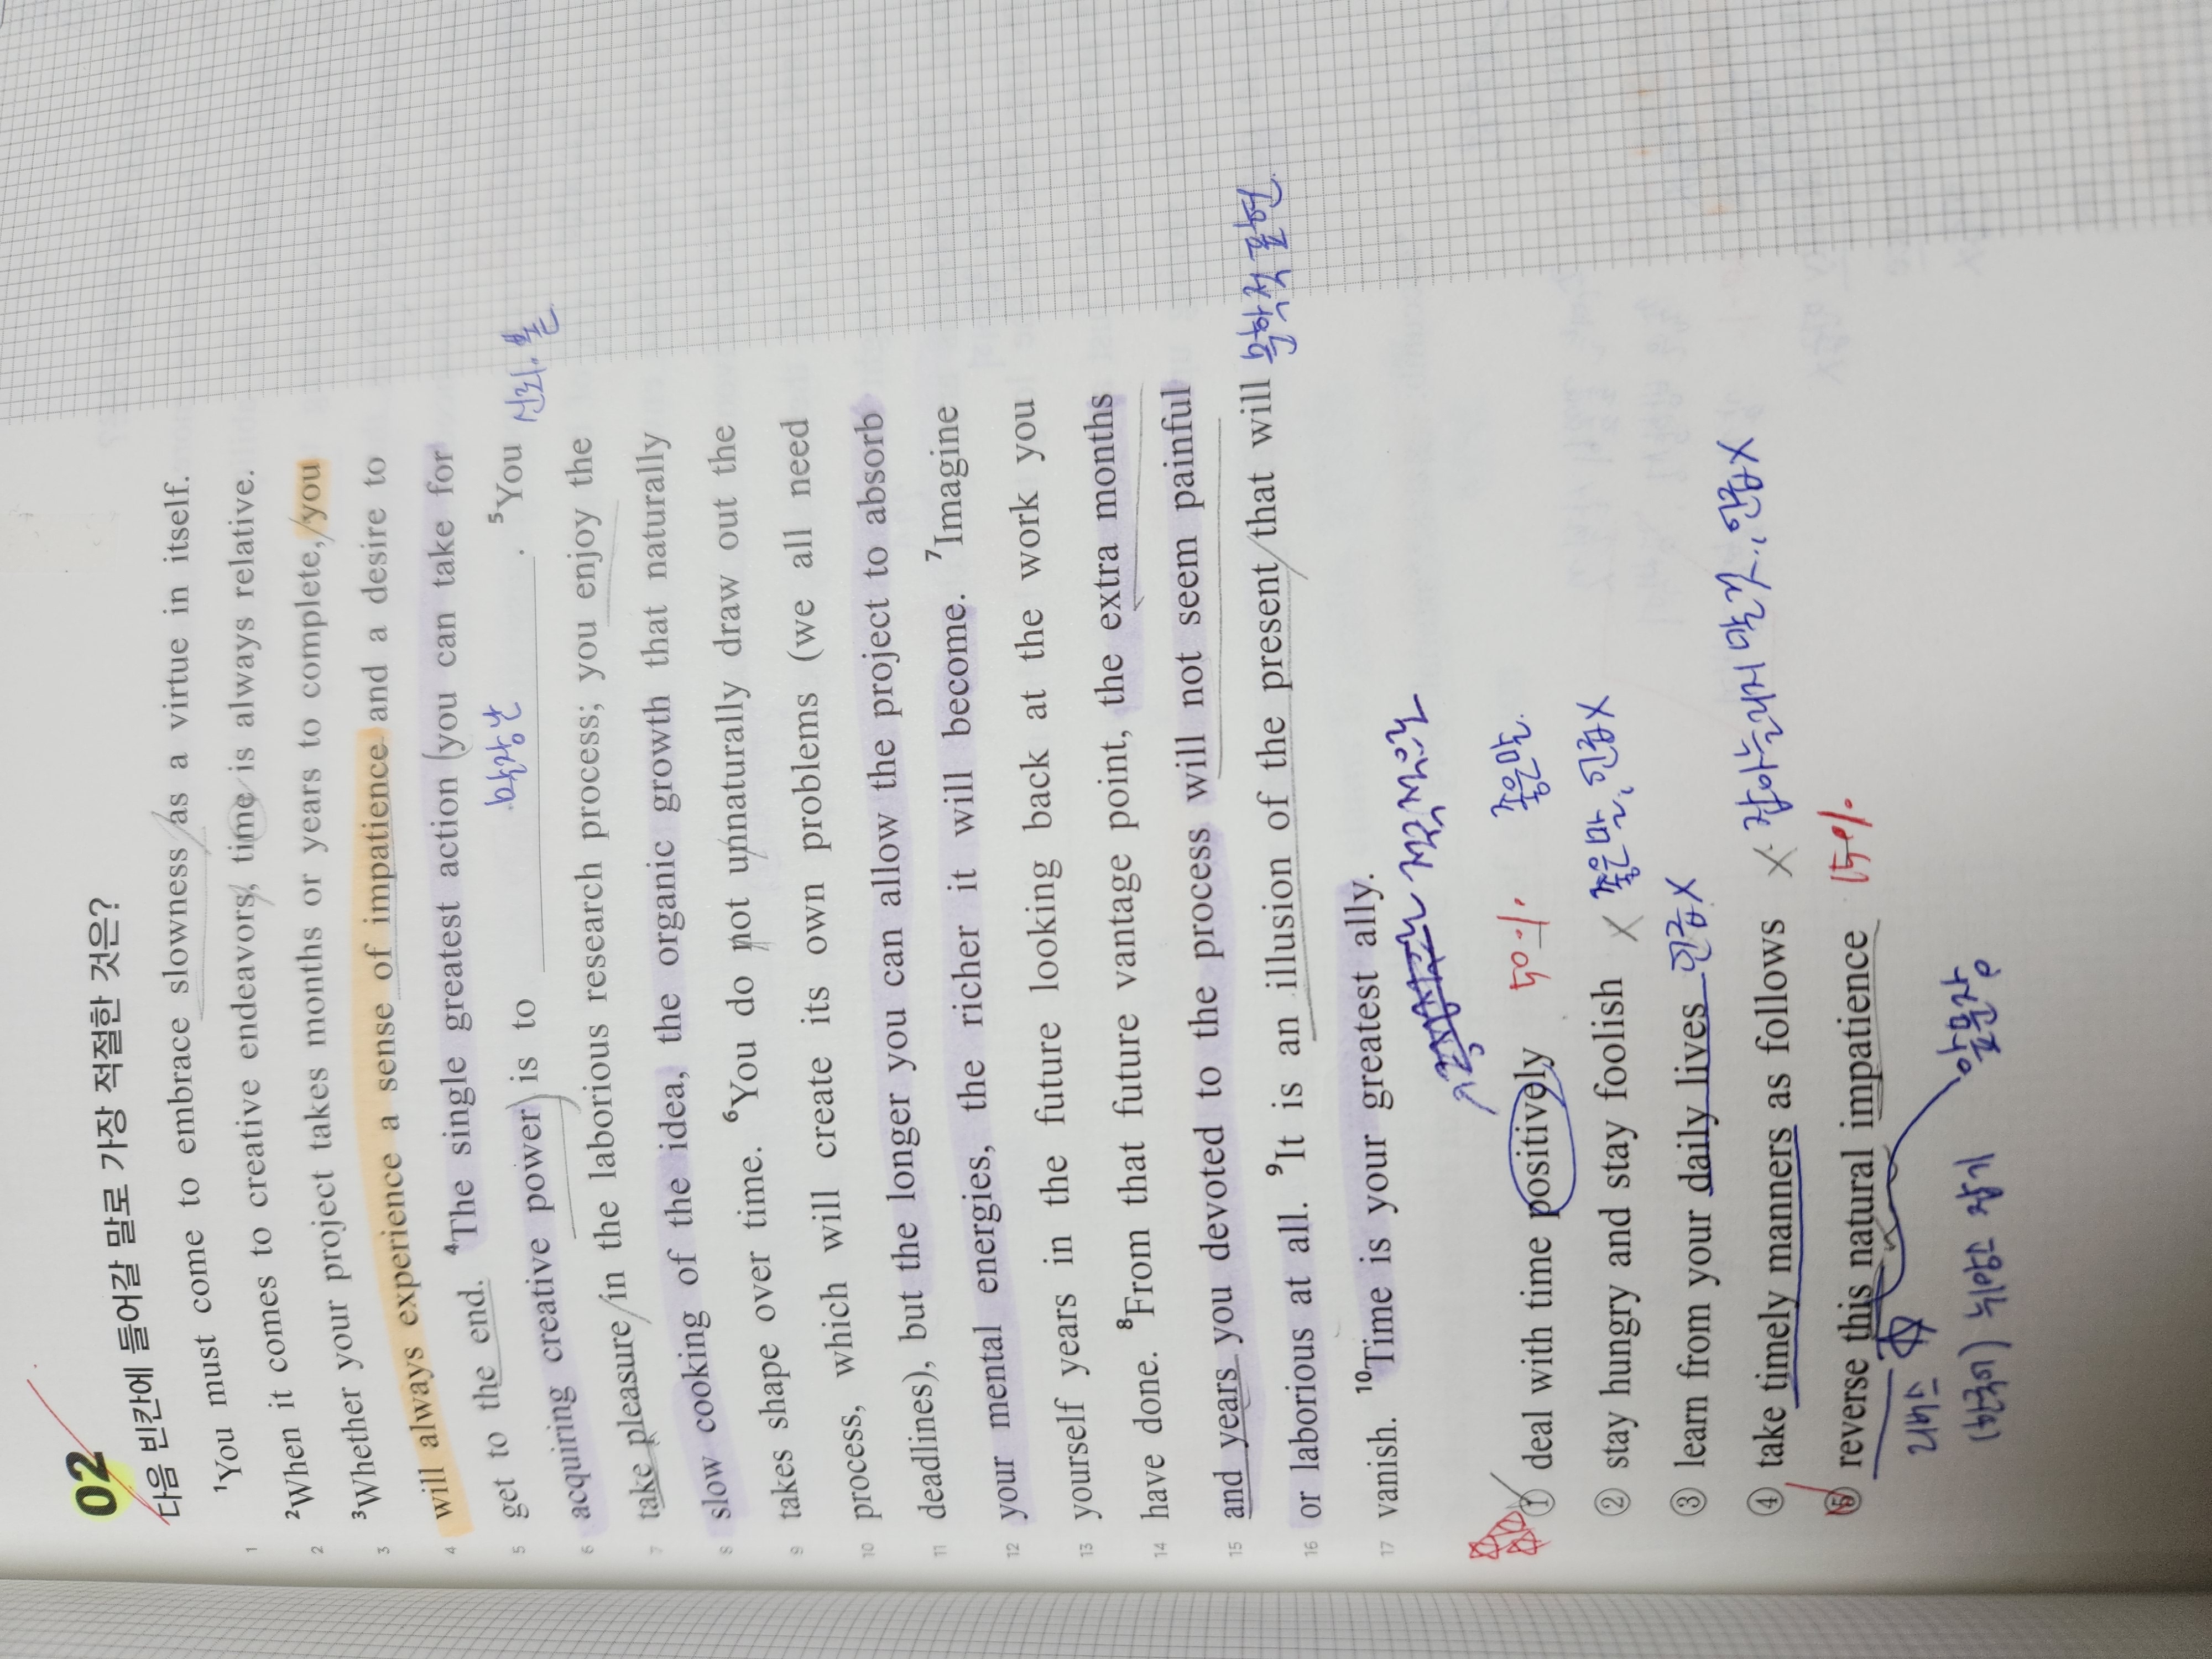 02
다음 빈칸에 들어갈 말로 가장 적절한 것은?
1 ¹You must come to embrace slowness as a virtue in itself.
2 ²When it comes to creative endeavors, time is always relative.
3 ³Whether your project takes months or years to complete, you
4 will always experience a sense of impatience and a desire to
5 get to the end. ⁴The single greatest action you can take for
6 acquiring creative power is to . ⁵You
박장난
7 take pleasure in the laborious research process; you enjoy the
8 slow cooking of the idea, the organic growth that naturally
9 takes shape over time. ⁶You do not unnaturally draw out the
10 process, which will create its own problems (we all need
11 deadlines), but the longer you can allow the project to absorb
12 your mental energies, the richer it will become. ⁷Imagine
13 yourself years in the future looking back at the work you
14 have done. ⁸From that future vantage point, the extra months
15 and years you devoted to the process will not seem painful
16 or laborious at all. ⁹It is an illusion of the present that will
17 vanish. ¹⁰Time is your greatest ally.
① deal with time positively 50%. 좋은말.
② stay hungry and stay foolish X 좋은말, 언급X
③ learn from your daily lives 언급X
④ take timely manners as follows X
⑤ reverse this natural impatience 15%.
앞문장